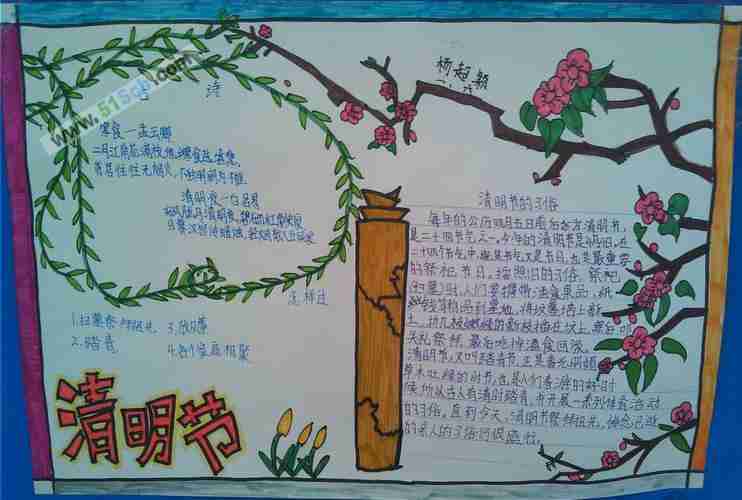 www.515cb.com
诗
杨超颖
寒食—孟云卿
二月江南花满枝,他乡寒食远堪悲,
贫居往往无烟火,不独明朝为子推
清明夜—白居易
好风胧月清明夜,碧砌红轩
怎样过
1.扫墓祭拜祖先 3.放
2.踏青 4.各个家庭相聚
清明节
清明节的习俗
每年的公历四月五日前后为清明节,
是二十四节气之一。今年的清明节是
二十四个节气中,既是节气又是节日,也是最重要
的祭祀节日,按照旧的习俗,祭祀
(扫墓)时,人们要携带酒食果品,纸
钱等物品到墓地,将坟墓培上新
土,折几枝嫩绿的新枝插在坟上,然后叩
头祭拜,最后吃掉酒食回家。
清明节,又叫踏青节,正是春光明媚
草木吐绿的时节,也是人们春游的好时
候,所以古人有清明踏青,并开展一系列体育活动
的习俗。直到今天,清明节祭拜祖先,悼念已逝
的亲人的习俗仍很盛行。